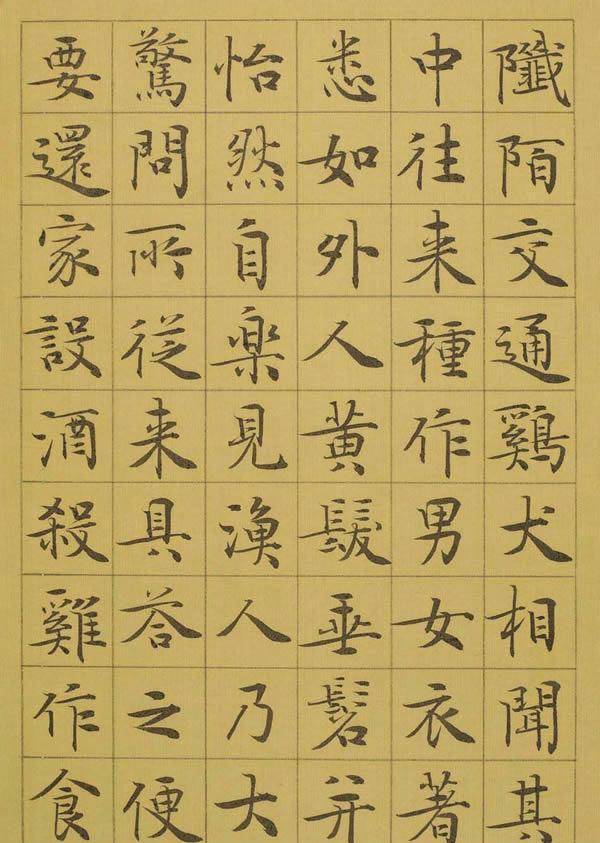 陌交通鷄犬相聞其
中往来種作男女衣著
悉如外人黄髮垂髫并
怡然自楽見漁人乃大
驚問所従来具答之便
要還家設酒殺雞作食